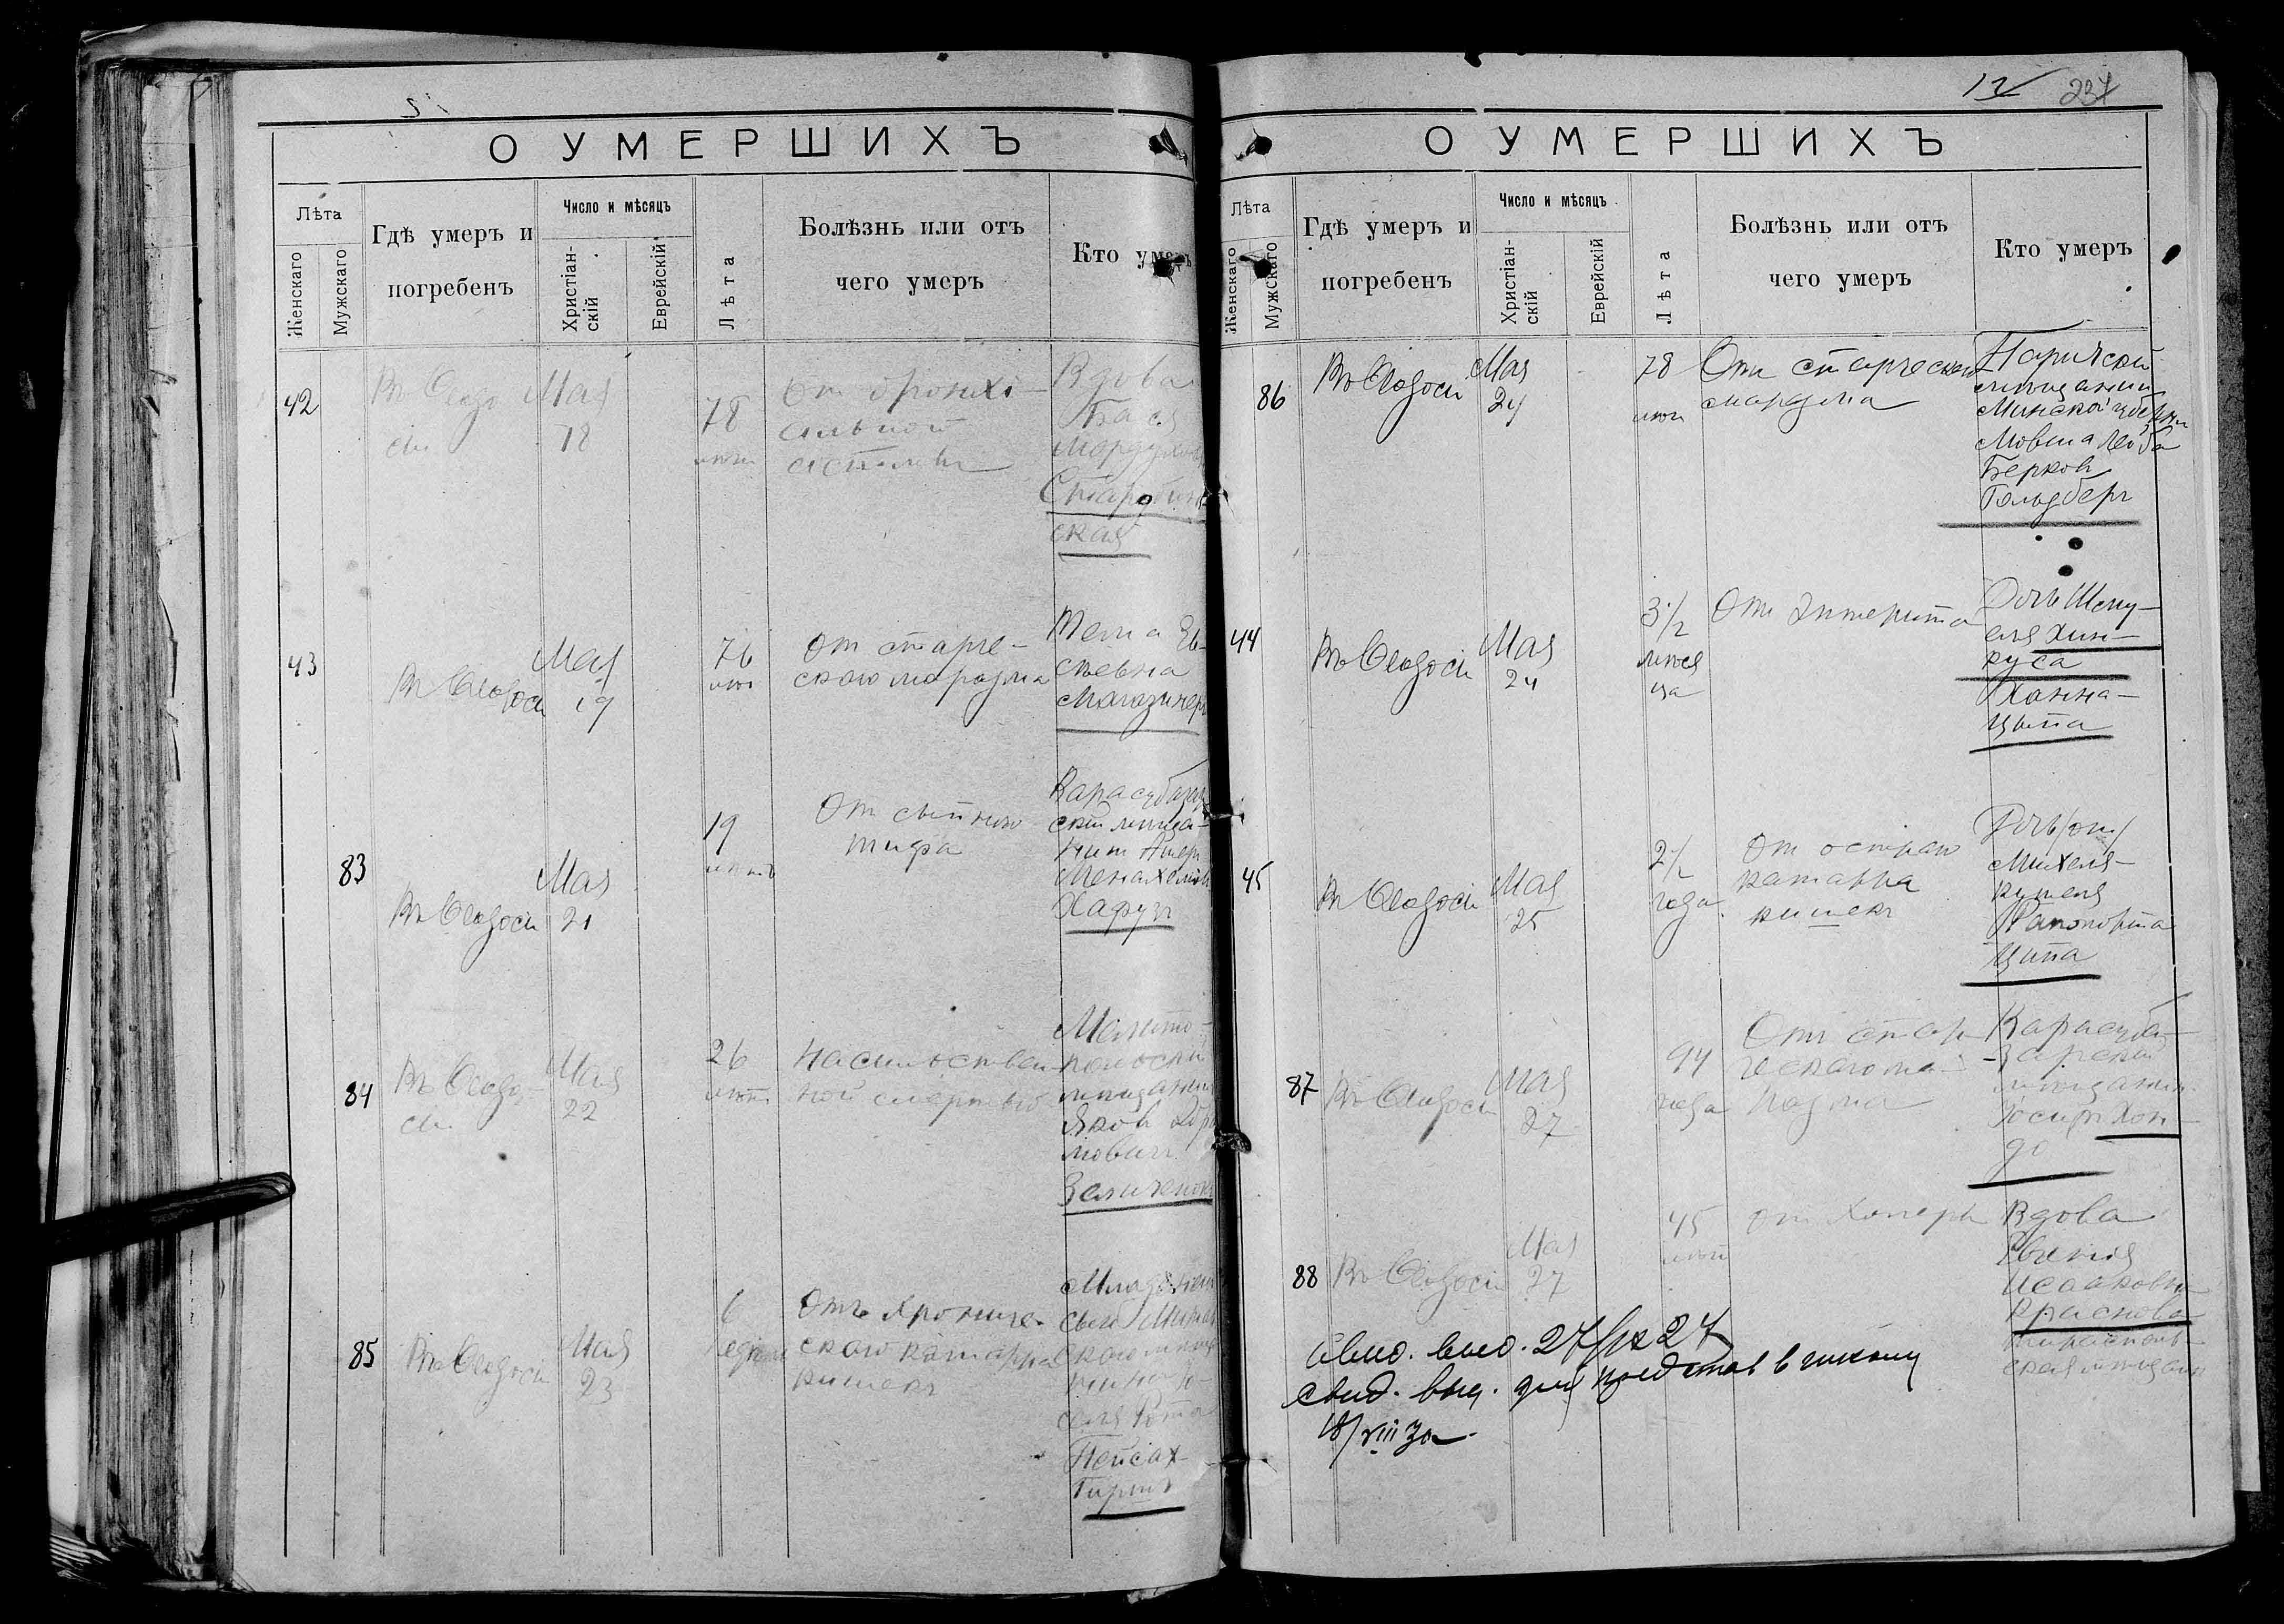 О УМЕРШИХЪ
Лѣта
Женскаго
Мужскаго
Гдѣ умеръ и
погребенъ
Число и мѣсяцъ
Христіан-
скій
Еврейскій
Лѣта
Болѣзнь или отъ
чего умеръ
Кто умеръ
42
Въ Ѳеодо
сіи
Мая
18
78
лѣтъ
От бронхі-
альной
астмы
Вдова
Бася
Мордухов
Старобин-
ская
43
Въ Ѳеодосіи
Мая
19
76
лѣтъ
От старче-
скаго маразма
Магазинер
83
Въ Ѳеодосіи
Мая
21
19
лѣтъ
От сыпного
тифа
Карасубазар
скій мѣща-
нин Ашер
Менахемов
Хафуз
84
Въ Ѳеодо-
сіи
Мая
22
26
лѣтъ
Насильствен-
ной смертью
Мелито-
польскій
мѣщанин
Яков Абра
мович
Зеличенок
85
Въ Ѳеодосіи
Мая
23
6
недѣль
Отъ хрониче-
скаго катарра
кишекъ
Младенец
сын
скаго мѣща
нина
Пейсах-
Гирш
12
237
О УМЕРШИХЪ
Лѣта
Женскаго
Мужскаго
Гдѣ умеръ и
погребенъ
Число и мѣсяцъ
Христіан-
скій
Еврейскій
Лѣта
Болѣзнь или отъ
чего умеръ
Кто умеръ
86
Въ Ѳеодосіи
Мая
24
78
лѣтъ
От старческаго
маразма
Паричскій
мѣщанин
Минской губерніи
Мовша Лейба
Берков
Гольдберг
44
Въ Ѳеодосіи
Мая
24
3 1/2
мѣся
ца
От энтерита
Дочь Шму-
еля Хин-
куса
Ханна-
Цыпа
45
Въ Ѳеодосіи
Мая
25
2 1/2
года
От остраго
катарра
кишек
Дочь
Михеля-
Рапопорта
Ципа
87
Въ Ѳеодосіи
Мая
27
94
года
От стар-
ческаго ма-
разма
Карасуба-
зарскій
мѣщанин
Іосиф Хон-
до
88
Въ Ѳеодосіи
Мая
27
45
лѣтъ
от холеры
Вдова
Евгения
Исааковна
Краснова
тирасполь-
ская мѣщанка
Свид. выд. для представ в школу
18/VIII 30